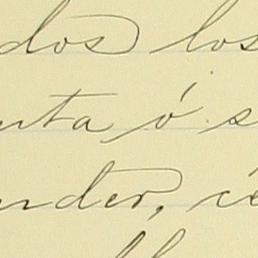 dos los
nta ó s
nder, cé